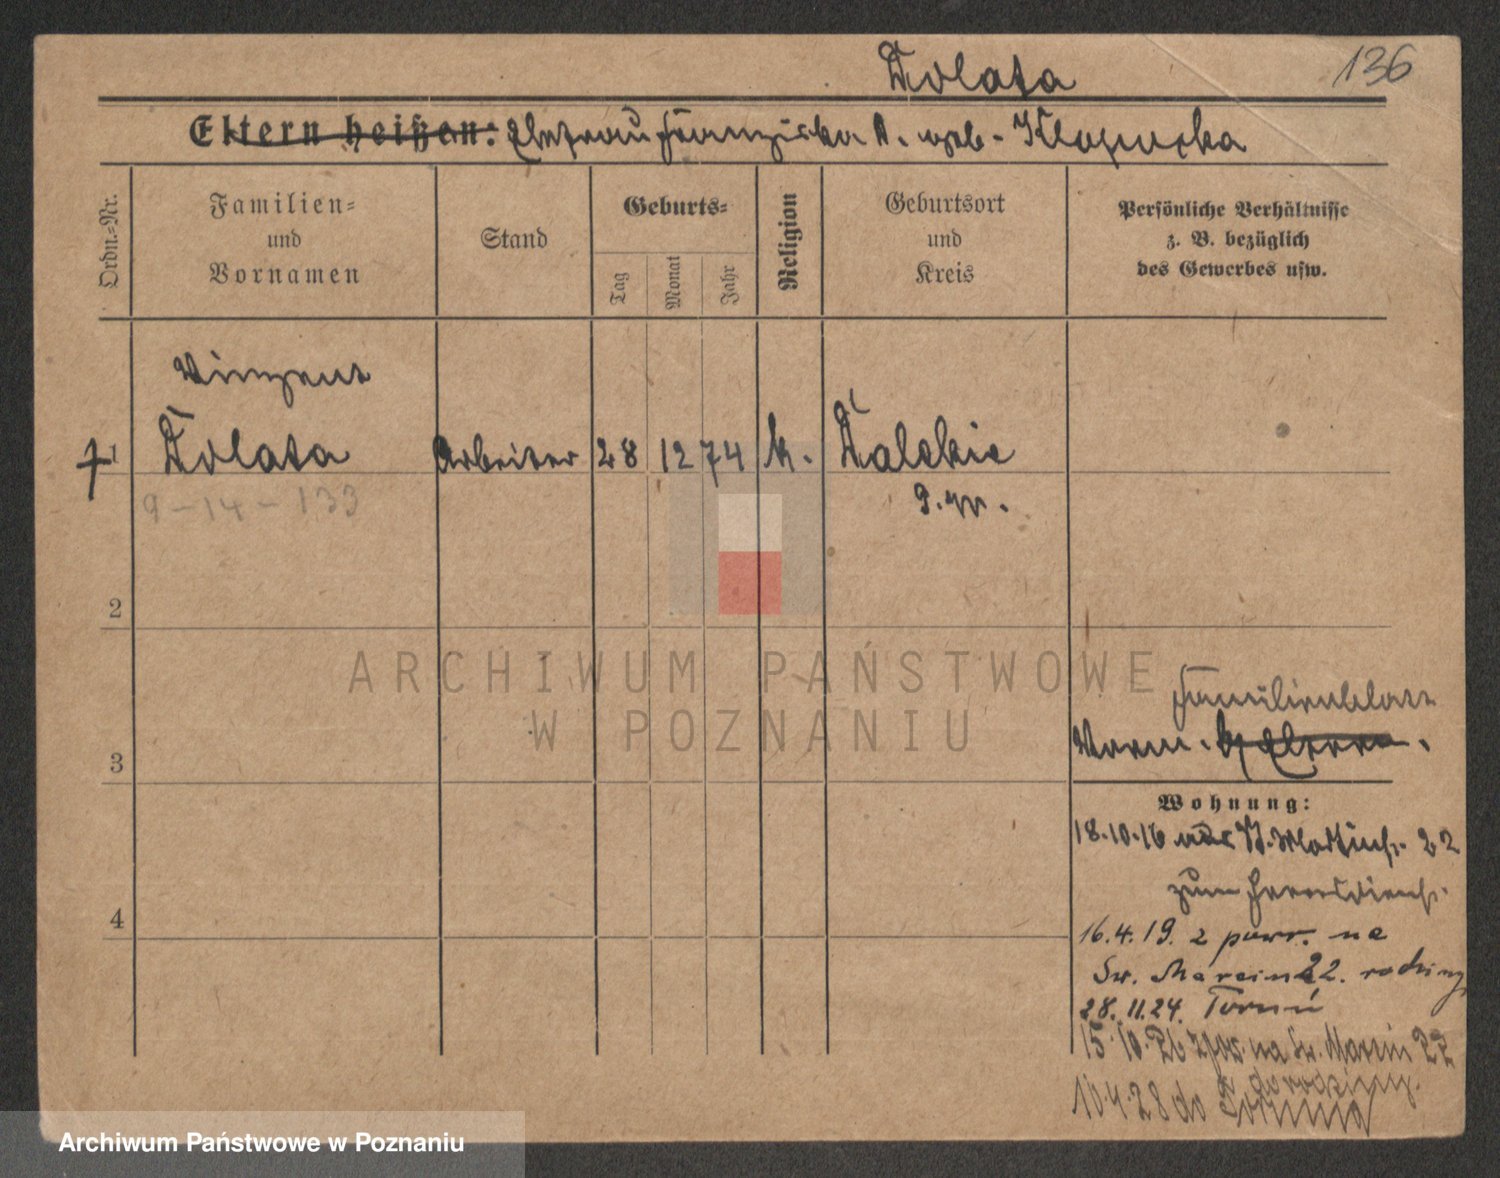 Dolata
136
Eltern heißen: Ehefrau Franziska D. geb.
Ordn.-Nr.
Familien-
und
Vornamen
Stand
Geburts-
Tag
Monat
Jahr
Religion
Geburtsort
und
Kreis
Persönliche Verhältnisse
z. B. bezüglich
des Gewerbes usw.
Vinzent
1 Dolata Arbeiter 28 12 74 k.
9-14-133
2
Familienblatt
Vorm. b/ Eltern.
3
Wohnung:
18.10.16 aus St. Martinstr. 22
zum Heeresdienst.
4
16.4.19. z powr. na
Św. Marcin 22. rodziny
28.11.24. Toruń
15.10.26 z pow. na Św. Marcin 22
do rodziny.
10.4.28 do Torunia
ARCHIWUM PAŃSTWOWE
W POZNANIU
Archiwum Państwowe w Poznaniu